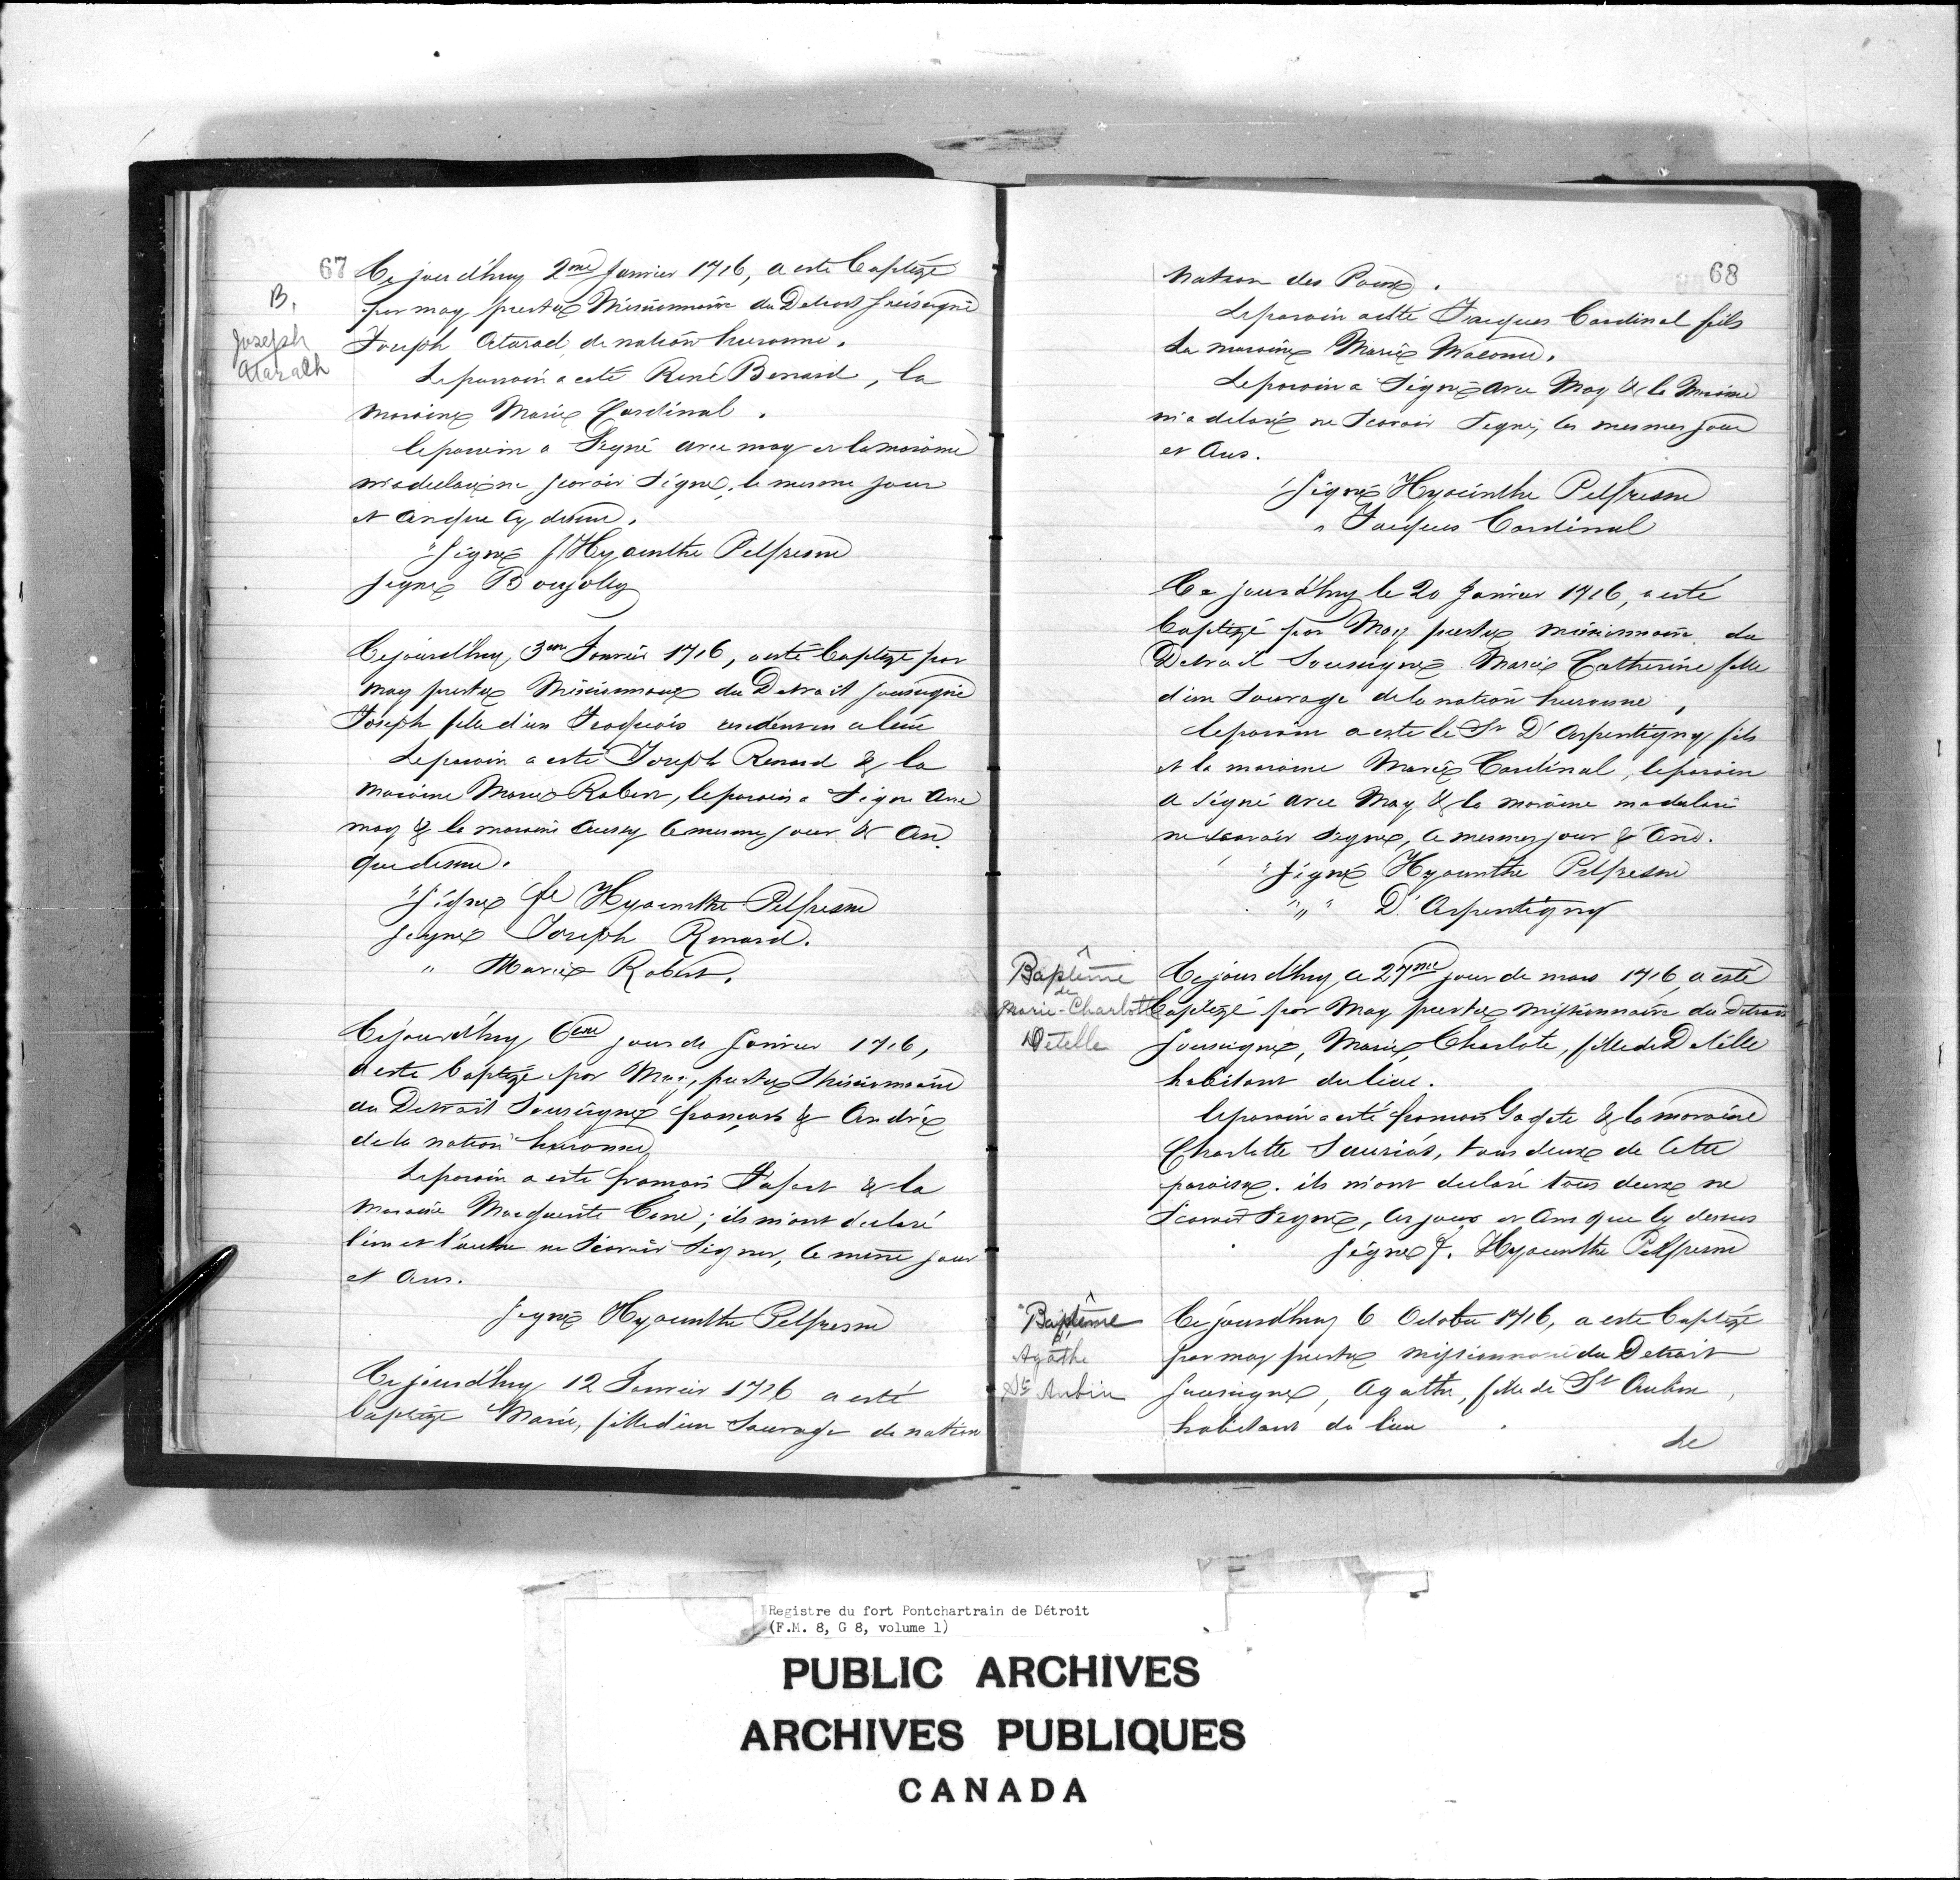 67
B.
Joseph
Atarath
Ce jourd'huy 2me Janvier 1716, a este baptizé
par moy prestre Missionnaire du Detroit soussigné
Joseph Atarad, de nation huronne.
Le parrain a esté René Benard, la
maraine Marie Cardinal.
le parrein a Signé avec moy et la maraine
m'a declaré ne scavoir Signé, le mesme jour
et an que cy dessus.
"Signé f Hyacinthe Pelfresne
Signé Boujolly
Ce jourd'huy, 3em Janvier 1716, a esté baptizé par
moy prestre Missionnaire du Detroit soussigné
Joseph fils d'un Iroquois
Le parain a esté Joseph Renard & la
maraine Marie Robert, le parain a Signé avec
moy & la maraine aussy le mesme jour & An
que dessus.
"Signé fr Hyacinthe Pelfresne
Signé Joseph Renard.
" Marie Robert.
Ce jourd'huy 6eme jour de Janvier 1716,
a este baptizé par Moy, prestre Missionnaire
du Detroit Soussigné françois & André
de la nation huronne
Le parain a este françois Fafart & la
maraine Marguerite ; ils m'ont declaré
l'un et l'autre ne Scavoir Signer, le mesme jour
et Ans.
Signé Hyacinthe Pelfresne
Ce jourd'huy 12 Janvier 1716 a esté
baptizé Marie, fille d'un Sauvage de nation
68
nation des Poux.
Le parain a esté Jacques Cardinal fils
La maraine Marie Maconu.
Le parain a Signé avec Moy & la Maraine
m'a delaré ne Scavoir Signé, les mesmes jour
et Ans.
"Signé Hyacinthe Pelfresne
" Jacques Cardinal
Ce jourd'huy le 20 Janvier 1716, a esté
baptizé par Moy prestre missionnaire du
Detroit Soussigné Marie Catherine fille
d'un Sauvage de la nation huronne,
le parain a este le Sr D'Arpentigny fils
et la maraine Marie Cardinal, le parain
a signé avec Moy & la maraine ma delaré
ne scavoir Signé, le mesme jour & And.
"Signé Hyacinthe Pelfresne
"" D'Arpentigny
Baptême
de
Marie-Charlotte
Detelle
Ce jourd'huy, ce 27me jour de mars 1716 a esté
baptizé par Moy prestre missionnaire du Detroit
soussigné, Marie Charlote, fille de Detelle
habitant du lieu.
le parain a esté françois Gagote & la maraine
Charlotte Sauriós, tous deux de cette
paroisse. ils m'ont declaré tous deux ne
Scavoir Signé, les jour et Ans que cy dessus
Signé f. Hyacinthe Pelfresne
Baptême
d'
Agathe
St Aubin
Ce jourd'huy 6 Octobre 1716, a este baptizé
par moy prestre missionnaire du Detroit
soussigné, Agathe, fille de St Aubin,
habitant du lieu
Le
Registre du fort Pontchartrain de Détroit
(F.M. 8, G 8, volume 1)
PUBLIC ARCHIVES
ARCHIVES PUBLIQUES
CANADA